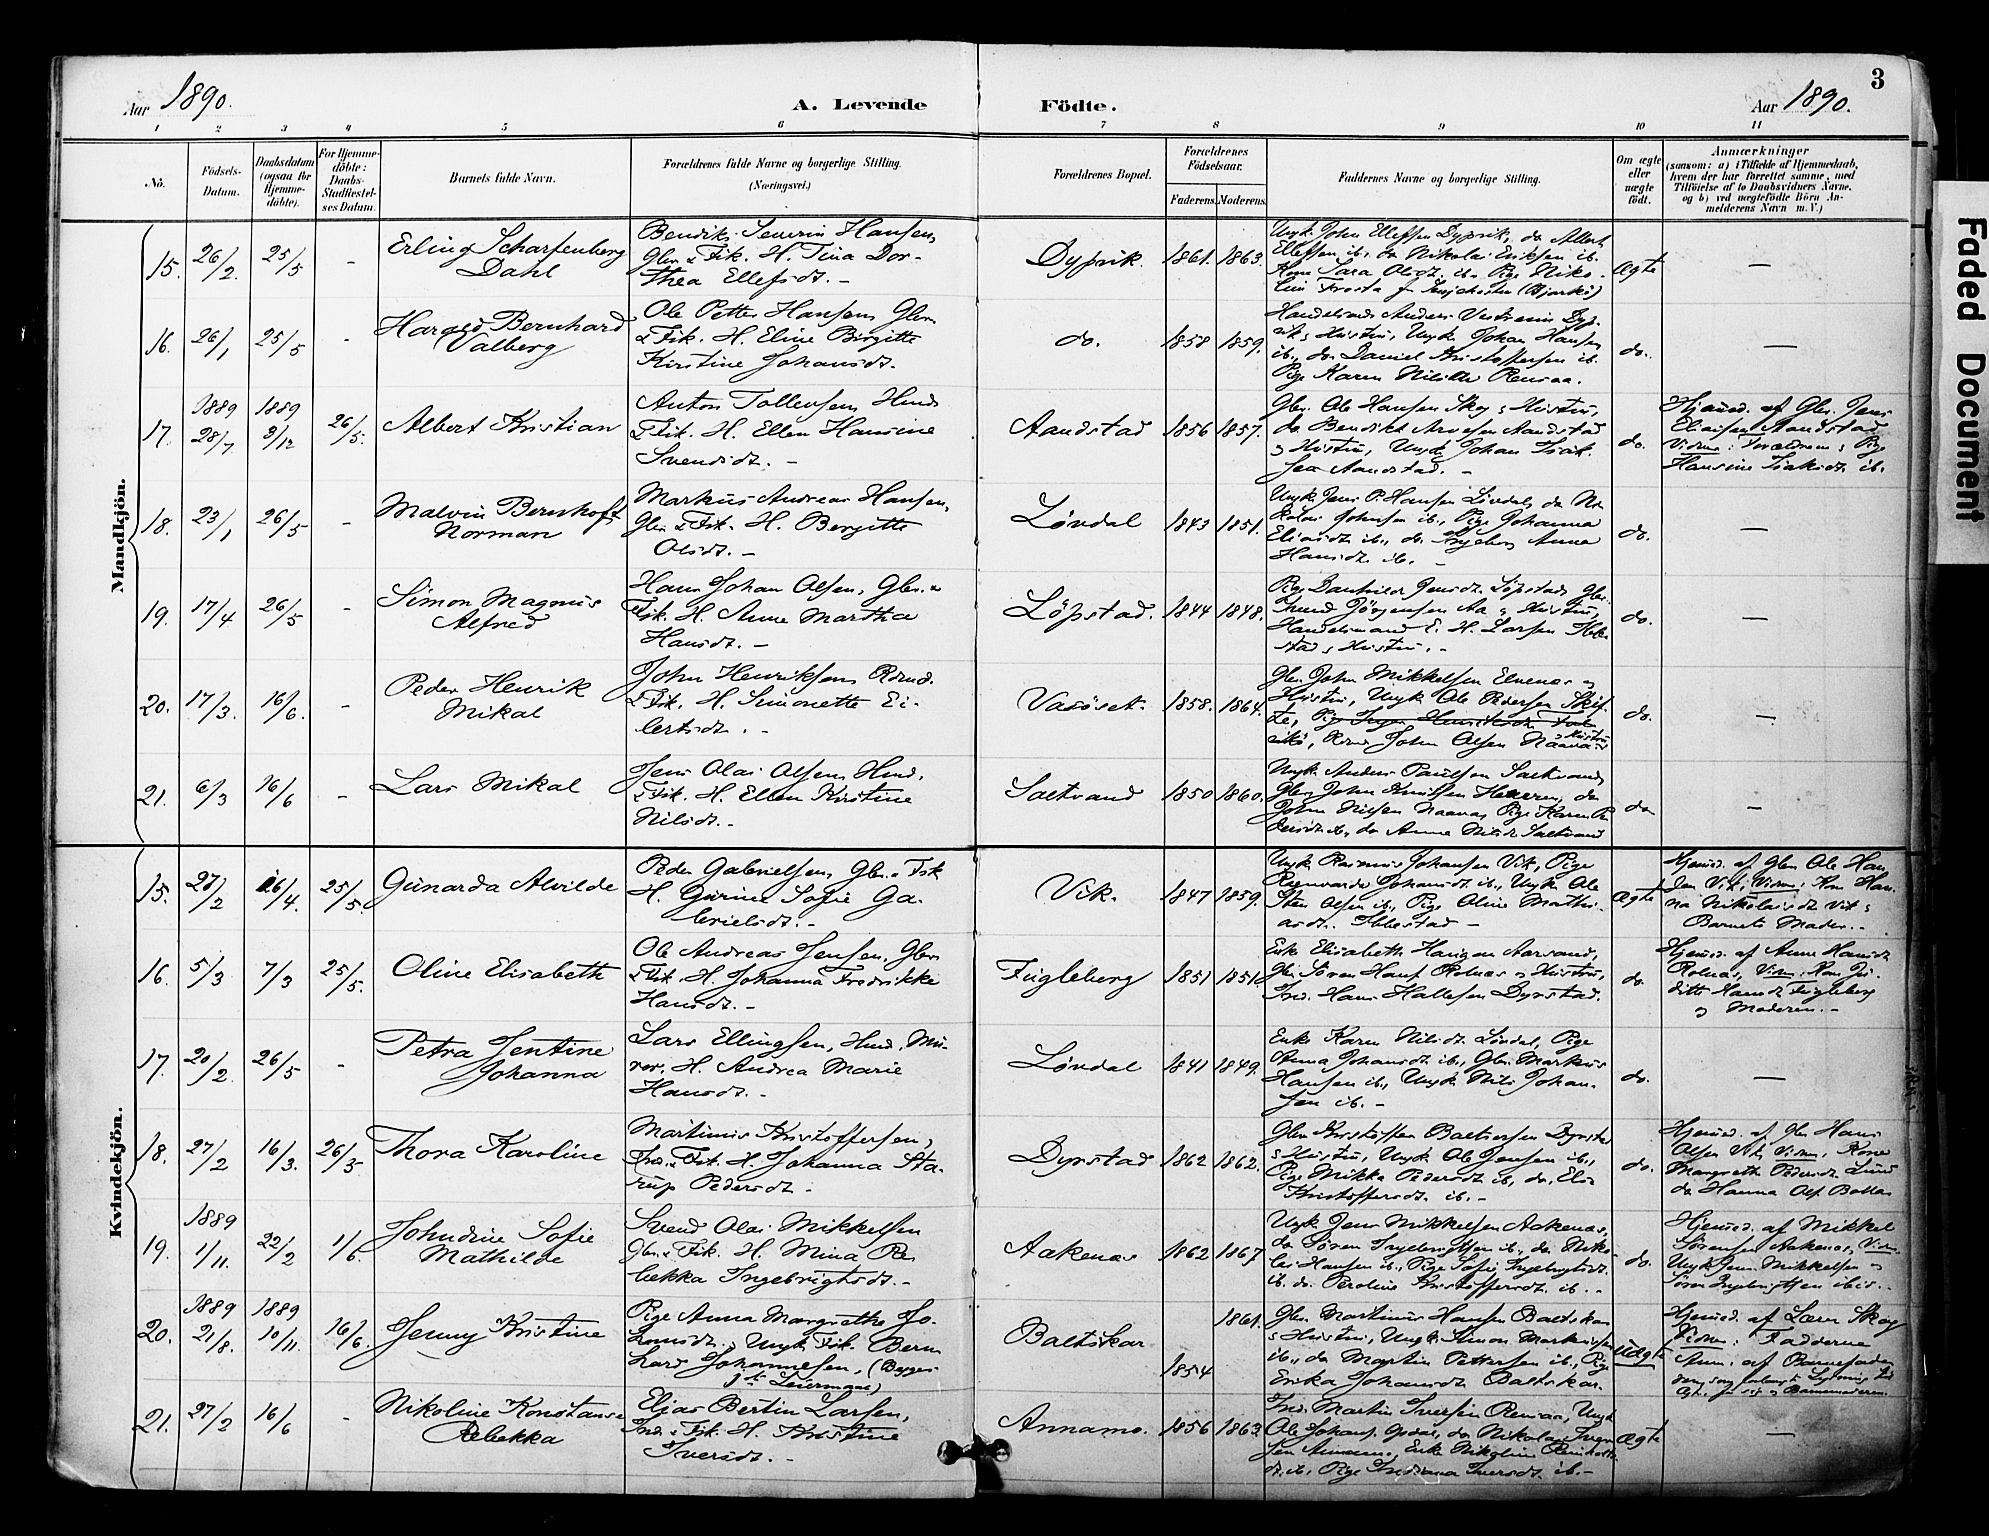 3
Aar 1890.
A. Levende Födte.
Aar 1890.
1 2 3 4 5 6 7 8 9 10 11
No.
Födsels-
Datum.
Daabsdatum
(ogsaa för
Hjemme-
döbte).
For Hjemme-
döbte:
Daabs-
Stadfæstel-
ses Datum.
Barnets fulde Navn.
Forældrenes fulde Navne og borgerlige Stilling.
(Næringsvei.)
Forældrenes Bopæl.
Forældrenes
Födselsaar.
Faderens. Moderens.
Faddernes Navne og borgerlige Stilling.
Om ægte
eller
uægte
födt.
Anmærkninger
(saasom: a) i Tilfælde af Hjemmedaab,
hvem der har forrettet samme, med
Tilföielse af to Daabsvidners Navne,
og b) ved uægtefödte Börn An-
melderens Navn m. V.)
Mandkjön.
15. 26/2 25/5 -
Erling Scharfenberg
Dahl
Bendik Severin Hansen,
Gbr. & Fisk. H. Tina Dor-
thea Ellefsdt. -
Dyprik. 1861. 1863.
Ungk. John Ellefsen Dyprik, do Albert
Ellefsen ib., do Nikolai Eriksen ib.
Kone Sara Olsdt. ib., Pige Niko-
(Bjarkö)
Ægte —
16. 26/1 25/5 -
Harald Bernhard
Valberg
Ole Petter Hansen, Gbr.
& Fisk. H. Eline Birgitte
Kirstine Johansdt.
do. 1858 1859.
Hustru, Ungk. Johan Hansen
ib., do Daniel Kristoffersen ib.
Pige Karen
do. —
17. 1889 28/7 1889 3/12 26/5.
Albert Kristian
Anton Tollevsen, Hmd.
& Fisk. H. Ellen Hansine
Svendsdt. -
Aandstad 1856 1857.
Gbr. Ole Hansen Skog & Hustru,
do Bendikt Arnesen Aandstad
& Hustru, Ungk. Johan Isak-
sen Aandstad. -
do.
Hjemmed. af Gbr. Jens
Eliassen Aandstad
Vidner: Forældrene & Pige
Hansine Isaksdt. ib.
18. 23/1 26/5 -
Malvin Bernhoft
Norman
Markus Andreas Hansen,
Gbr. & Fisk. H. Bergitte
Olsdt. -
Løvdal 1843 1851.
Ungk. Jens P. Hansen Løvdal, do Ni-
kolai Johnsen ib., Pige Johanna
Eliasdt. ib., do Ingeborg Anna
Hansdt. ib. -
do. —
19. 17/4 26/5 -
Simon Magnus
Alfred
Hans Johan Olsen, Gbr. &
Fisk. H. Anne Martha
Hansdt. -
Löpstad. 1844 1848.
Jensdt. Löpstad, Gbr.
Knud Jörgensen Aa & Hustru,
Handelsmand E. H. Larsen Hal-
stad & Hustru. -
do. —
20. 17/3. 16/6. -
Peder Henrik
Mikal
John Henriksen, Rdmd.
& Fisk. H. Simonette Ei-
lertsdt. -
Vasöset. 1858. 1864.
Gbr. John Mikkelsen Elvenes &
Hustru, Ungk. Ole Pedersen
John Olsen
& Hustru
do. —
21. 6/3 16/6 -
Lars Mikal
Jens Olai Olsen, Hmd.
& Fisk. H. Ellen Kirstine
Nilsdt. -
Saltvand 1850 1860.
Ungk. Anders Paulsen Saltvand,
Gbr. John Knutsen do
John Nilsen Naavas, Pige Karen Pe-
dersdt. ib., do Anna Nilsdt. Saltvand
do —
Kvindekjön.
15. 27/2 16/4. 25/5.
Gunarda Alvilde
Peder Gabrielsen, Gbr. & Fisk
H. Gurine Sofie Ga-
brielsdt. -
Vik. 1847 1859.
Ungk. Rasmus Johansen Vik, Pige
Johansdt. ib., Ungk. Ole
Sten Olsen ib., Pige Oline Mathi-
asdt. Ibbestad -
Ægte
Hjemmed. af Gbr. Ole Han-
sen Vik; Vidner: Kone Han-
na Nikolaisdt. Vik &
Barnets Moder. -
16. 5/3 7/3 25/5.
Oline Elisabeth
Ole Andreas Jensen, Gbr.
& Fisk. H. Johanna Fredrikke
Hansdt. -
Fugleberg 1851 1851
Enke Elisabeth Aarsand,
Gbr. Sören Hans. Rolnæs & Hustru,
Ind. Hans Hallesen Dyrstad.
do.
Hjemmed. af Anne Hansdt.
Rolnæs, Vidner: Kone Ju-
ditte Hansdt. Fugleberg
& Moderen. -
17. 20/2 26/5 -
Petra Jentine
Johanna
Lars Ellingsen, Hmd., Mu-
rer. H. Andrea Marie
Hansdt. -
Løvdal 1841 1849.
Enke Karen Nilsdt. Løvdal, Pige
Anna Johansdt. ib., Gbr. Markus
Hansen ib., Ungk. Nils Johan-
sen ib. -
do. —
18. 27/2 16/3. 26/5
Thora Karoline
Martinus Kristoffersen,
Ind. & Fisk. H. Johanna Sta-
rup Pedersdt. -
Dyrstad 1862 1862.
Gbr. Kristoffer Baltzersen Dyrstad
& Hustru, Ungk. Ole Jensen ib.,
Pige Mikka Pedersdt. ib., do. Elen
Kristoffersdt. ib. -
do.
Hjemmed. af Gbr. Hans
Olsen Vik, Vidner: Kone
Margreth Pedersdt. Lund
do Hanna Ols. Bolla
19. 1889 1/11. 22/2 1/6.
Johndine Sofie
Mathilde
Svend Olai Mikkelsen
Gbr. & Fisk. H. Mina Re-
bekka Ingebrigtsdt. -
Aakenæs 1862 1867
Ungk. Jens Mikkelsen Aakenæs,
do Sören Ingebrigtsen ib., do. Niko-
lai Hansen ib., Pige Sofie Ingebrigtsdt.
ib. do. Peroline Kristoffersdt. ib. -
do.
Hjemmed. af Mikkel
Sörensen Aakenæs, Vidn.
Ungk. Jens Mikkelsen &
Sören Ingebrigtsen ibid. -
20. 1889 21/8. 1889 10/11. 16/6.
Jenny Kristine
Pige Anna Margrethe Jo-
hansdt., Ungk. Fisk. Bern-
hard Johannesen, (Begges
1ste Leiermaal)
Baltskar 1854 1861.
Gbr. Martinus Hansen Baltskar
& Hustru, Ungk. Simon Markussen
ib., do Martin Pettersen ib., Pige
Erika Johansdt. Baltskar.
Uægte
Hjemmed. af Lærer Skog
Vidner: Fadderne
Anm. af Barnefaderen
21. 27/2 16/6 -
Nikoline Konstanse
Rebekka
Elias Bertin Larsen,
Ind. & Fisk. H. Kristine
Iversdt. -
Annamo. 1856 1863.
Ind. Martin Iversen Rensaa, Ungk.
Ole Johans. do Nikolai
sen Annamo, Enke Nikoline
dt. ib., Pige Indiana Iversdt. ib. -
Ægte —
Faded Document